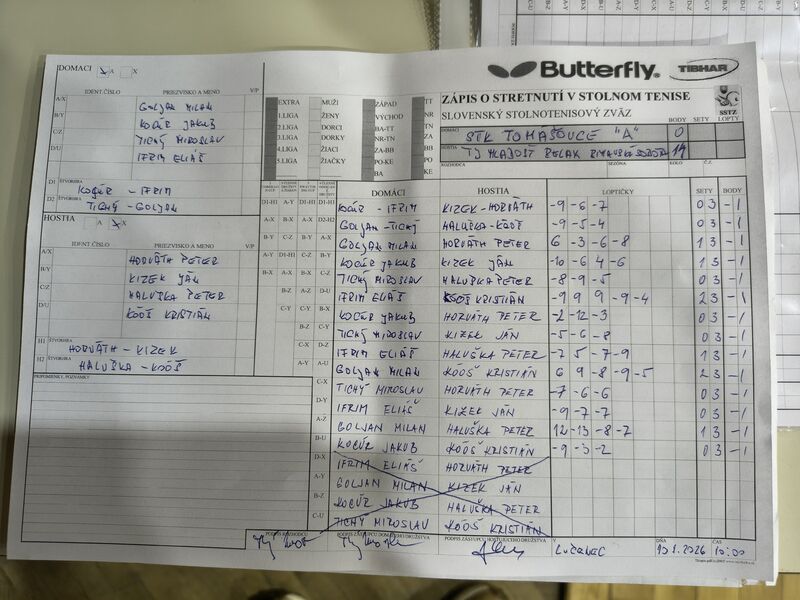 Butterfly
TIBHAR
ZÁPIS O STRETNUTÍ V STOLNOM TENISE
SLOVENSKÝ STOLNOTENISOVÝ ZVÄZ
SSTZ
BODY SETY LOPTY
DOMÁCI STK TOMÁŠOVCE "A" 0
HOSTIA TJ MLADOSŤ RELAX RIMAVSKÁ SOBOTA 14
ROZHODCA SEZÓNA KOLO Č.Z.
DOMÁCI A X
IDENT.ČÍSLO PRIEZVISKO A MENO V/P
A/X GOLJAN MILAN
B/Y KOCÚR JAKUB
C/Z TICHÝ MIROSLAV
D/U IFRIM ELIÁŠ
D1 ŠTVORHRA KOCÚR - IFRIM
D2 ŠTVORHRA TICHÝ - GOLJAN
HOSTIA A X
IDENT.ČÍSLO PRIEZVISKO A MENO V/P
A/X HORVÁTH PETER
B/Y KIZEK JÁN
C/Z HALUŠKA PETER
D/U KÓÓŠ KRISTIÁN
H1 ŠTVORHRA HORVÁTH - KIZEK
H2 ŠTVORHRA HALUŠKA - KÓÓŠ
PRIPOMIENKY, POZNÁMKY
EXTRA MUŽI ZÁPAD TT
1.LIGA ŽENY VÝCHOD NR
2.LIGA DORCI BA-TT TN
3.LIGA DORKY NR-TN ZA
4.LIGA ŽIACI ZA-BB BB
5.LIGA ŽIAČKY PO-KE PO
BA KE
DOMÁCI HOSTIA LOPTIČKY SETY BODY
KOCÚR - IFRIM KIZEK - HORVÁTH -9 -6 -7 0 3 -1
GOLJAN - TICHÝ HALUŠKA - KÓÓŠ -9 -5 -4 0 3 -1
GOLJAN MILAN HORVÁTH PETER 6 -3 -6 -8 1 3 -1
KOCÚR JAKUB KIZEK JÁN -10 -6 4 -6 1 3 -1
TICHÝ MIROSLAV HALUŠKA PETER -8 -9 -5 0 3 -1
IFRIM ELIÁŠ KÓÓŠ KRISTIÁN -9 9 9 -9 -4 2 3 -1
KOCÚR JAKUB HORVÁTH PETER -2 -12 -3 0 3 -1
TICHÝ MIROSLAV KIZEK JÁN -5 -6 -8 0 3 -1
IFRIM ELIÁŠ HALUŠKA PETER -7 5 -7 -9 1 3 -1
GOLJAN MILAN KÓÓŠ KRISTIÁN 6 9 -8 -9 -5 2 3 -1
TICHÝ MIROSLAV HORVÁTH PETER -7 -6 -6 0 3 -1
IFRIM ELIÁŠ KIZEK JÁN -9 -7 -7 0 3 -1
GOLJAN MILAN HALUŠKA PETER 12 -13 -8 -7 1 3 -1
KOCÚR JAKUB KÓÓŠ KRISTIÁN -9 -3 -2 0 3 -1
IFRIM ELIÁŠ HORVÁTH PETER
GOLJAN MILAN KIZEK JÁN
KOCÚR JAKUB HALUŠKA PETER
TICHÝ MIROSLAV KÓÓŠ KRISTIÁN
PODPIS ROZHODCU PODPIS ZÁSTUPCU DOMÁCEHO DRUŽSTVA PODPIS ZÁSTUPCU HOSŤUJÚCEHO DRUŽSTVA V LUČENEC DŇA 10.1.2026 ČAS 10:00